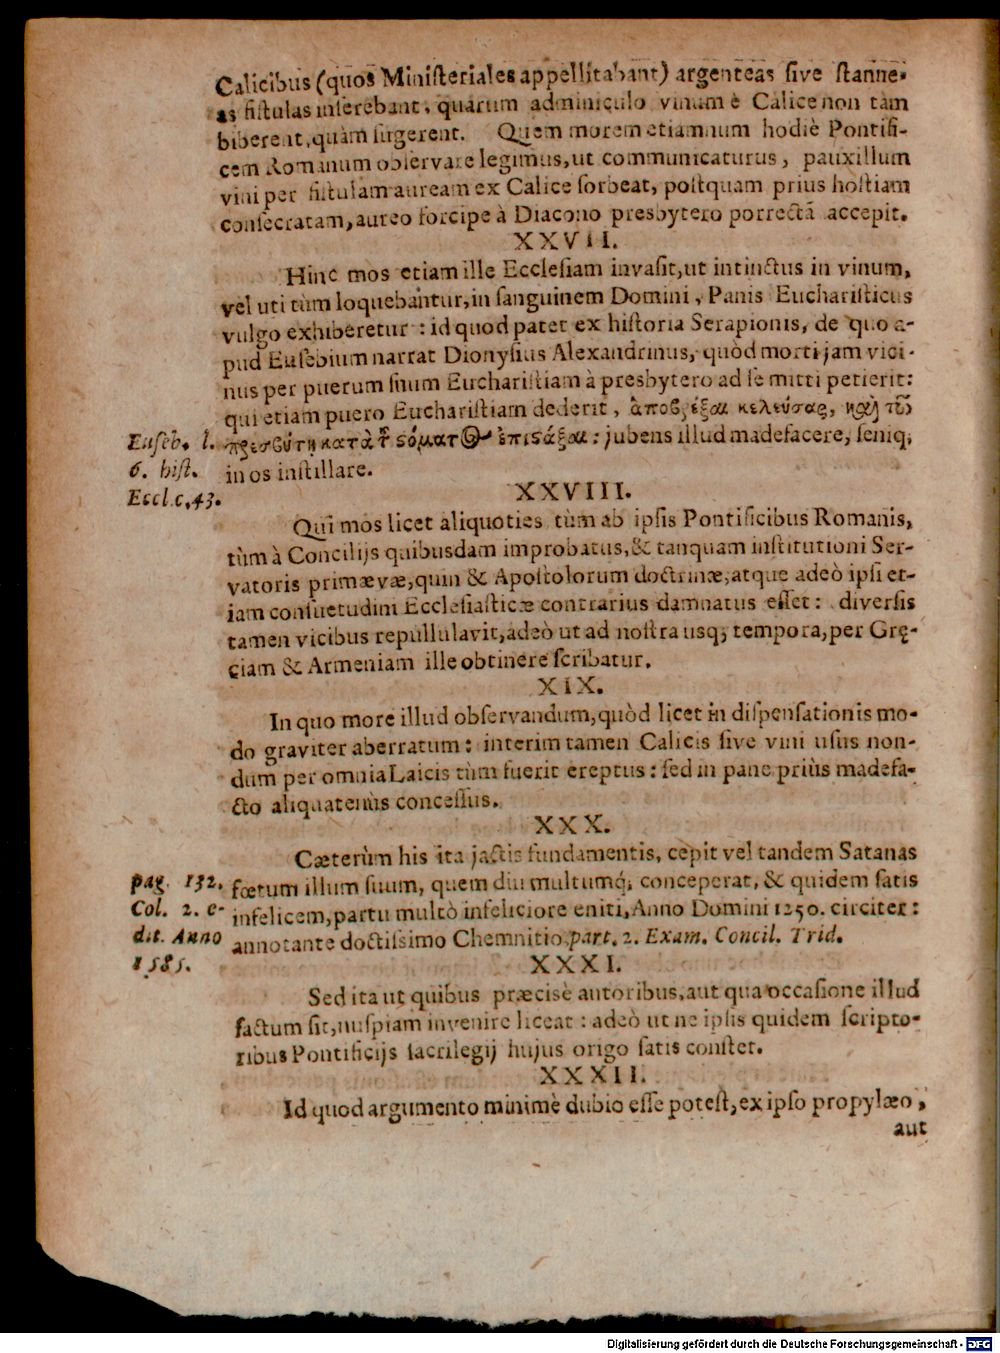 Calicibus (quos Ministeriales appellitabant) argenteas sive stanne-
as fistulas inserebant, quarum adminiculo vinum è Calice non tàm
biberent, quàm sugerent. Quem morem etiamnum hodiè Pontifi-
cem Romanum observare legimus, ut communicaturus, pauxillum
vini per fistulam auream ex Calice sorbeat, postquam prius hostiam
consecratam, aureo forcipe à Diacono presbytero porrectā accepit.
XXVII.
Hinc mos etiam ille Ecclesiam invasit, ut intinctus in vinum,
vel uti tùm loquebantur, in sanguinem Domini, Panis Eucharisticus
vulgo exhiberetur: id quod patet ex historia Serapionis, de quo a-
pud Eusebium narrat Dionysius Alexandrinus, quòd morti jam vici-
nus per puerum suum Eucharistiam à presbytero ad se mitti petierit:
qui etiam puero Eucharistiam dederit, ἀποβρέξαι κελεύσας, καὶ τῷ
πρεσβύτῃ κατὰ τ̃ στόματος ἐπιστάξαι: jubens illud madefacere, seniq;
in os instillare.
Euseb. l.
6. hist.
Eccl. c. 43.
XXVIII.
Qui mos licet aliquoties tùm ab ipsis Pontificibus Romanis,
tùm à Concilijs quibusdam improbatus, & tanquam institutioni Ser-
vatoris primævæ, quin & Apostolorum doctrinæ, atque adeò ipsi et-
iam consuetudini Ecclesiasticæ contrarius damnatus esset: diversis
tamen vicibus repullulavit, adeò ut ad nostra usq; tempora, per Grę-
ciam & Armeniam ille obtinere scribatur.
XIX.
In quo more illud observandum, quòd licet in dispensationis mo-
do graviter aberratum: interim tamen Calicis sive vini usus non-
dum per omnia Laicis tùm fuerit ereptus: sed in pane priùs madefa-
cto aliquatenùs concessus.
XXX.
Cæterùm his ita jactis fundamentis, cepit vel tandem Satanas
fœtum illum suum, quem diu multumq; conceperat, & quidem satis
infelicem, partu multò infeliciore eniti, Anno Domini 1250. circiter:
annotante doctissimo Chemnitio part. 2. Exam. Concil. Trid.
pag. 132.
Col. 2. e-
dit. Anno
1585.
XXXI.
Sed ita ut quibus præcisè autoribus, aut qua occasione illud
factum sit, nuspiam invenire liceat: adeò ut ne ipsis quidem scripto-
ribus Pontificijs sacrilegij hujus origo satis constet.
XXXII.
Id quod argumento minimè dubio esse potest, ex ipso propylæo,
aut
Digitalisierung gefördert durch die Deutsche Forschungsgemeinschaft - DFG